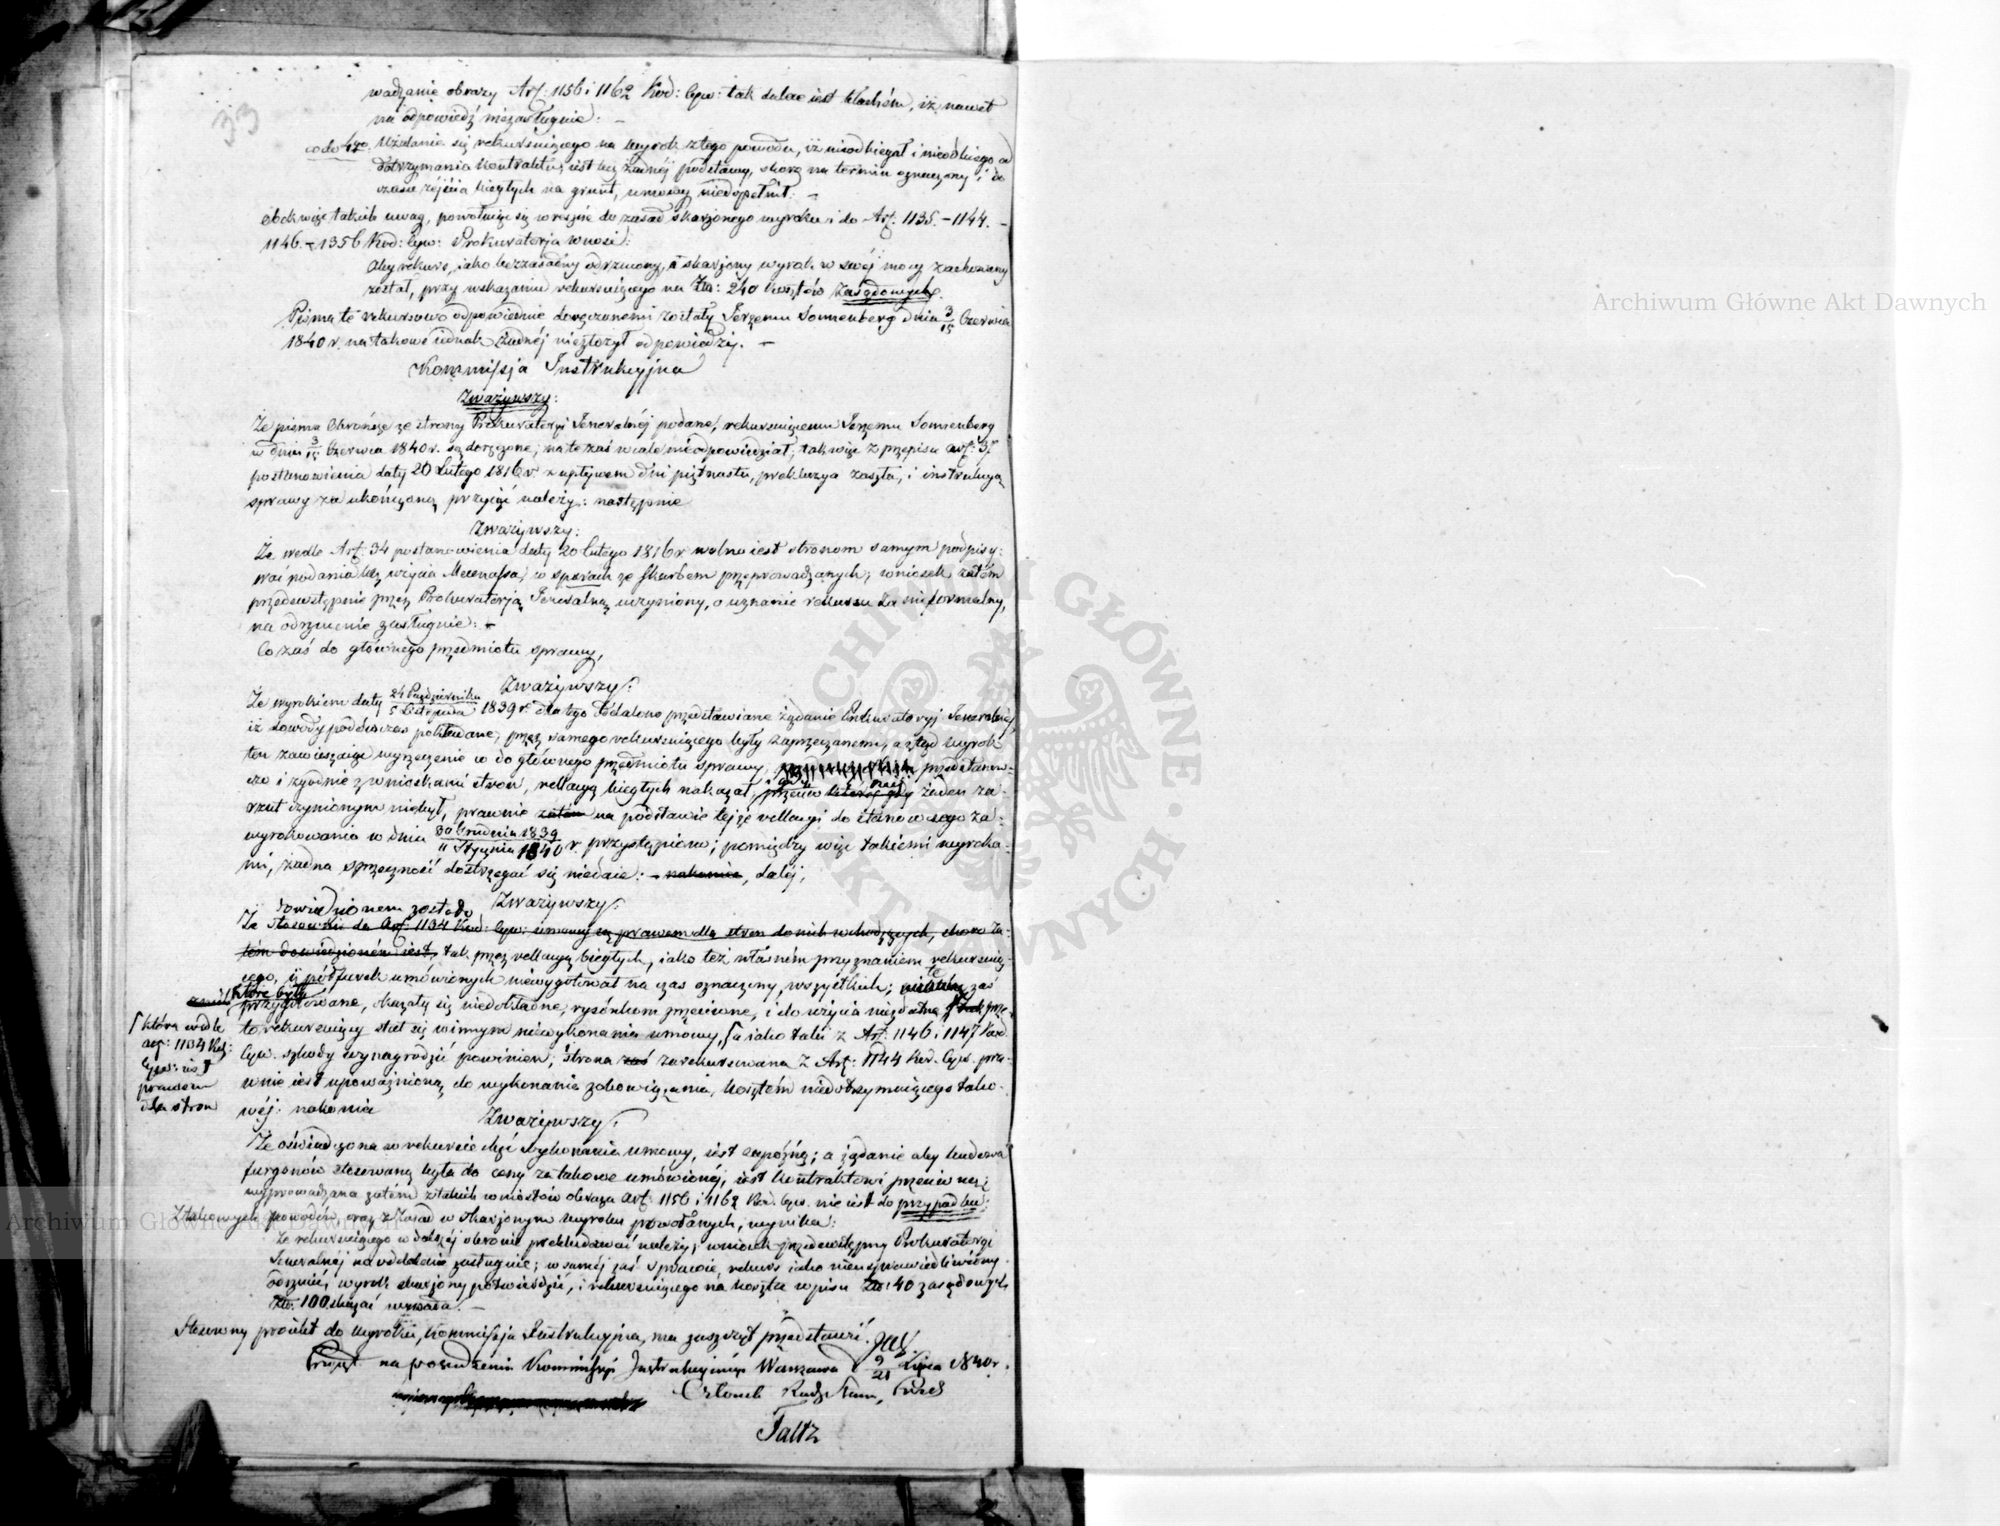 33
wadzanie obrazy Art: 1156 i 1162 Kod: Cyw: tak dalece iest błachém, iż nawet
na odpowiedź niezasługuie: —
co do 4go. Użalanie się rekursuiącego na wyrok z tego powodu, iż nieodbiegał i nieodbiega od
dotrzymania kontraktu, iest bez żadnéj podstawy, skoro na termin oznaczony i do
czasu zejścia biegłych na grunt, umowy niedopełnił. —
Obok więc takich uwag, powołuiąc się wreszcie do zasad skarżonego wyroku i do Art: 1135. – 1144. –
1146. – 1356 Kod: Cyw: Prokuratorja wnosi:
Aby rekurs, iako bezzasadny odrzucony, a skarżony wyrok w swéj mocy zachowany
został, przy wskazaniu rekursuiącego na Złp: 240 kosztów zasądzonych.
Pisma te rekursowo odpowiednie doręczonemi zostały Jerzemu Sonnenberg dnia 3/15 Czerwca
1840 r. na takowe iednak żadnéj niezłożył odpowiedzi. —
Kommissja Instrukcyjna
Zważywszy:
Że pisma obrończe ze strony Prokuratorji Jeneralnéj podane, rekursuiącemu Jerzemu Sonnenberg
w dniu 3/15 Czerwca 1840 r. są doręczone; na te zaś wcale nieodpowiedział, tak więc z przepisu art: 37
postanowienia daty 20 Lutego 1816 r. z upływem dni piętnastu, prekluzya zaszła, i instrukcyą
sprawy za ukończoną przyiąć należy: następnie
Zważywszy:
Że wedle Art: 34 postanowienia daty 20 lutego 1816 r. wolno iest stronom samym podpisy-
wać podania bez użycia Mecenassa, w sporach ze Skarbem przeprowadzanych; wniosek zatém
przedewstępnie przez Prokuratorją Jeneralną uczyniony, o uznanie rekursu za nieformalny,
na odrzucenie zasługuie: —
Co zaś do głównego przedmiotu sprawy,
Zważywszy:
Że wyrokiem daty 24 Października / 5 Listopada 1839 r. dla tego oddalono przedstawiane żądanie Prokuratoryi Jeneralnéj
iż dowody podówczas pokładane, przez samego rekursuiącego były zaprzeczanemi, a ztąd wyrok
ten zawieszaiąc wyrzeczenie co do głównego przedmiotu sprawy, przedstanow-
czo i zgodnie z wnioskami stron, rellacyą biegłych nakazał, przeciw któréj gdy żaden za-
rzut czynionym niebył, prawnie zatém na podstawie tejże rellacyi do stanowczego za-
wyrokowania w dniu 30 Grudnia 1839 / 11 Stycznia 1840 r. przystąpiono; pomiędzy więc takiemi wyroka-
mi, żadna sprzeczność dostrzegać się niedaie: — nakoniec, daléj,
Zważywszy:
dowiedzionem zostało
Że stosownie do Art: 1134 Kod: Cyw: umowy są prawem dla stron do nich wchodzących, skoro za-
tém dowiedzioném iest, tak przez rellacyą biegłych, iako też własném przyznaniem rekursuią-
cego, iż pół furek umówionych niewygotował na czas oznaczony, wszystkich; te zaś
które były
przygotowane, okazały się niedokładne, rysunkom przeciwne, i do użycia niezdatne prze-
to rekursuiący stał się winnym niewykonania umowy, ſ a iako taki z Art: 1146 i 1147 Kod
Cyw. szkody wynagrodzić powinien; strona zaś zarekursowana z Art: 1144 Kod. Cyw. pra-
wnie iest upoważnioną do wykonania zobowiązania, kosztem niedotrzymuiącego tako-
wéj: nakoniec
ſ która wedle
art: 1134 Kod:
Cyw: iest
prawem
dla stron
Zważywszy:
Że oświadczona w rekursie chęć wykonania umowy, iest zapóźną; a żądanie aby budowa
furgonów stosowaną była do ceny za takowe umówionéj, iest kontraktowi przeciwną;
wyprowadzana zatém z takich wniosków obraza Art: 1156 i 1162 Kod. Cyw. nie iest do przypadku;
Z takowych powodów, oraz z Zasad w skarżonym wyroku powołanych, wynika:
Że rekursuiącego w dalszéj obronie prekludować należy; wniosek przedewstępny Prokuratorji
Jeneralnéj na oddalenie zasługuie; w saméj zaś sprawie, rekurs iako niesprawiedliwiony
odrzucić, wyrok skarżony potwierdzić, i rekursuiącego na koszta wpisu Złp: 40 zasądowych
Złp: 100 skazać wypada. —
Stosowny proiekt do wyroku, Kommissja Instrukcyjna, ma zaszczyt przedstawić.
Przyjęt na posiedzeniu Kommissyi Instrukcyjnéj w Warszawie d 9/21 Lipca 1840 r.
Członek Rady Stanu, Prezes
Faltz